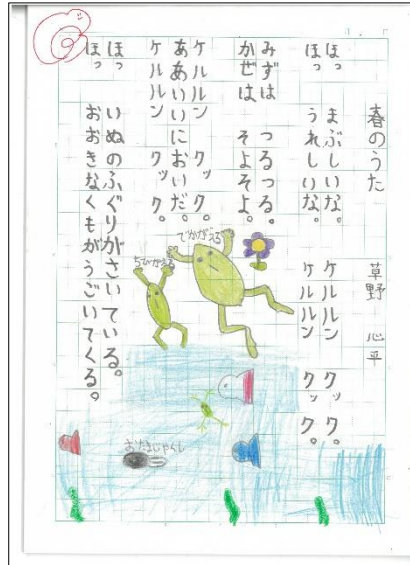 春のうた
草野 心平
ほっ まぶしいな。
ほっ うれしいな。
みずは つるつる。
かぜは そよそよ。
ケルルン クック。
ああいいにおいだ。
ケルルン クック。
ほっ いぬのふぐりがさいている。
ほっ おおきなくもがうごいてくる。
ケルルン クック。
ケルルン クック。
でかがえる
ちびがえる
おたまじゃくし